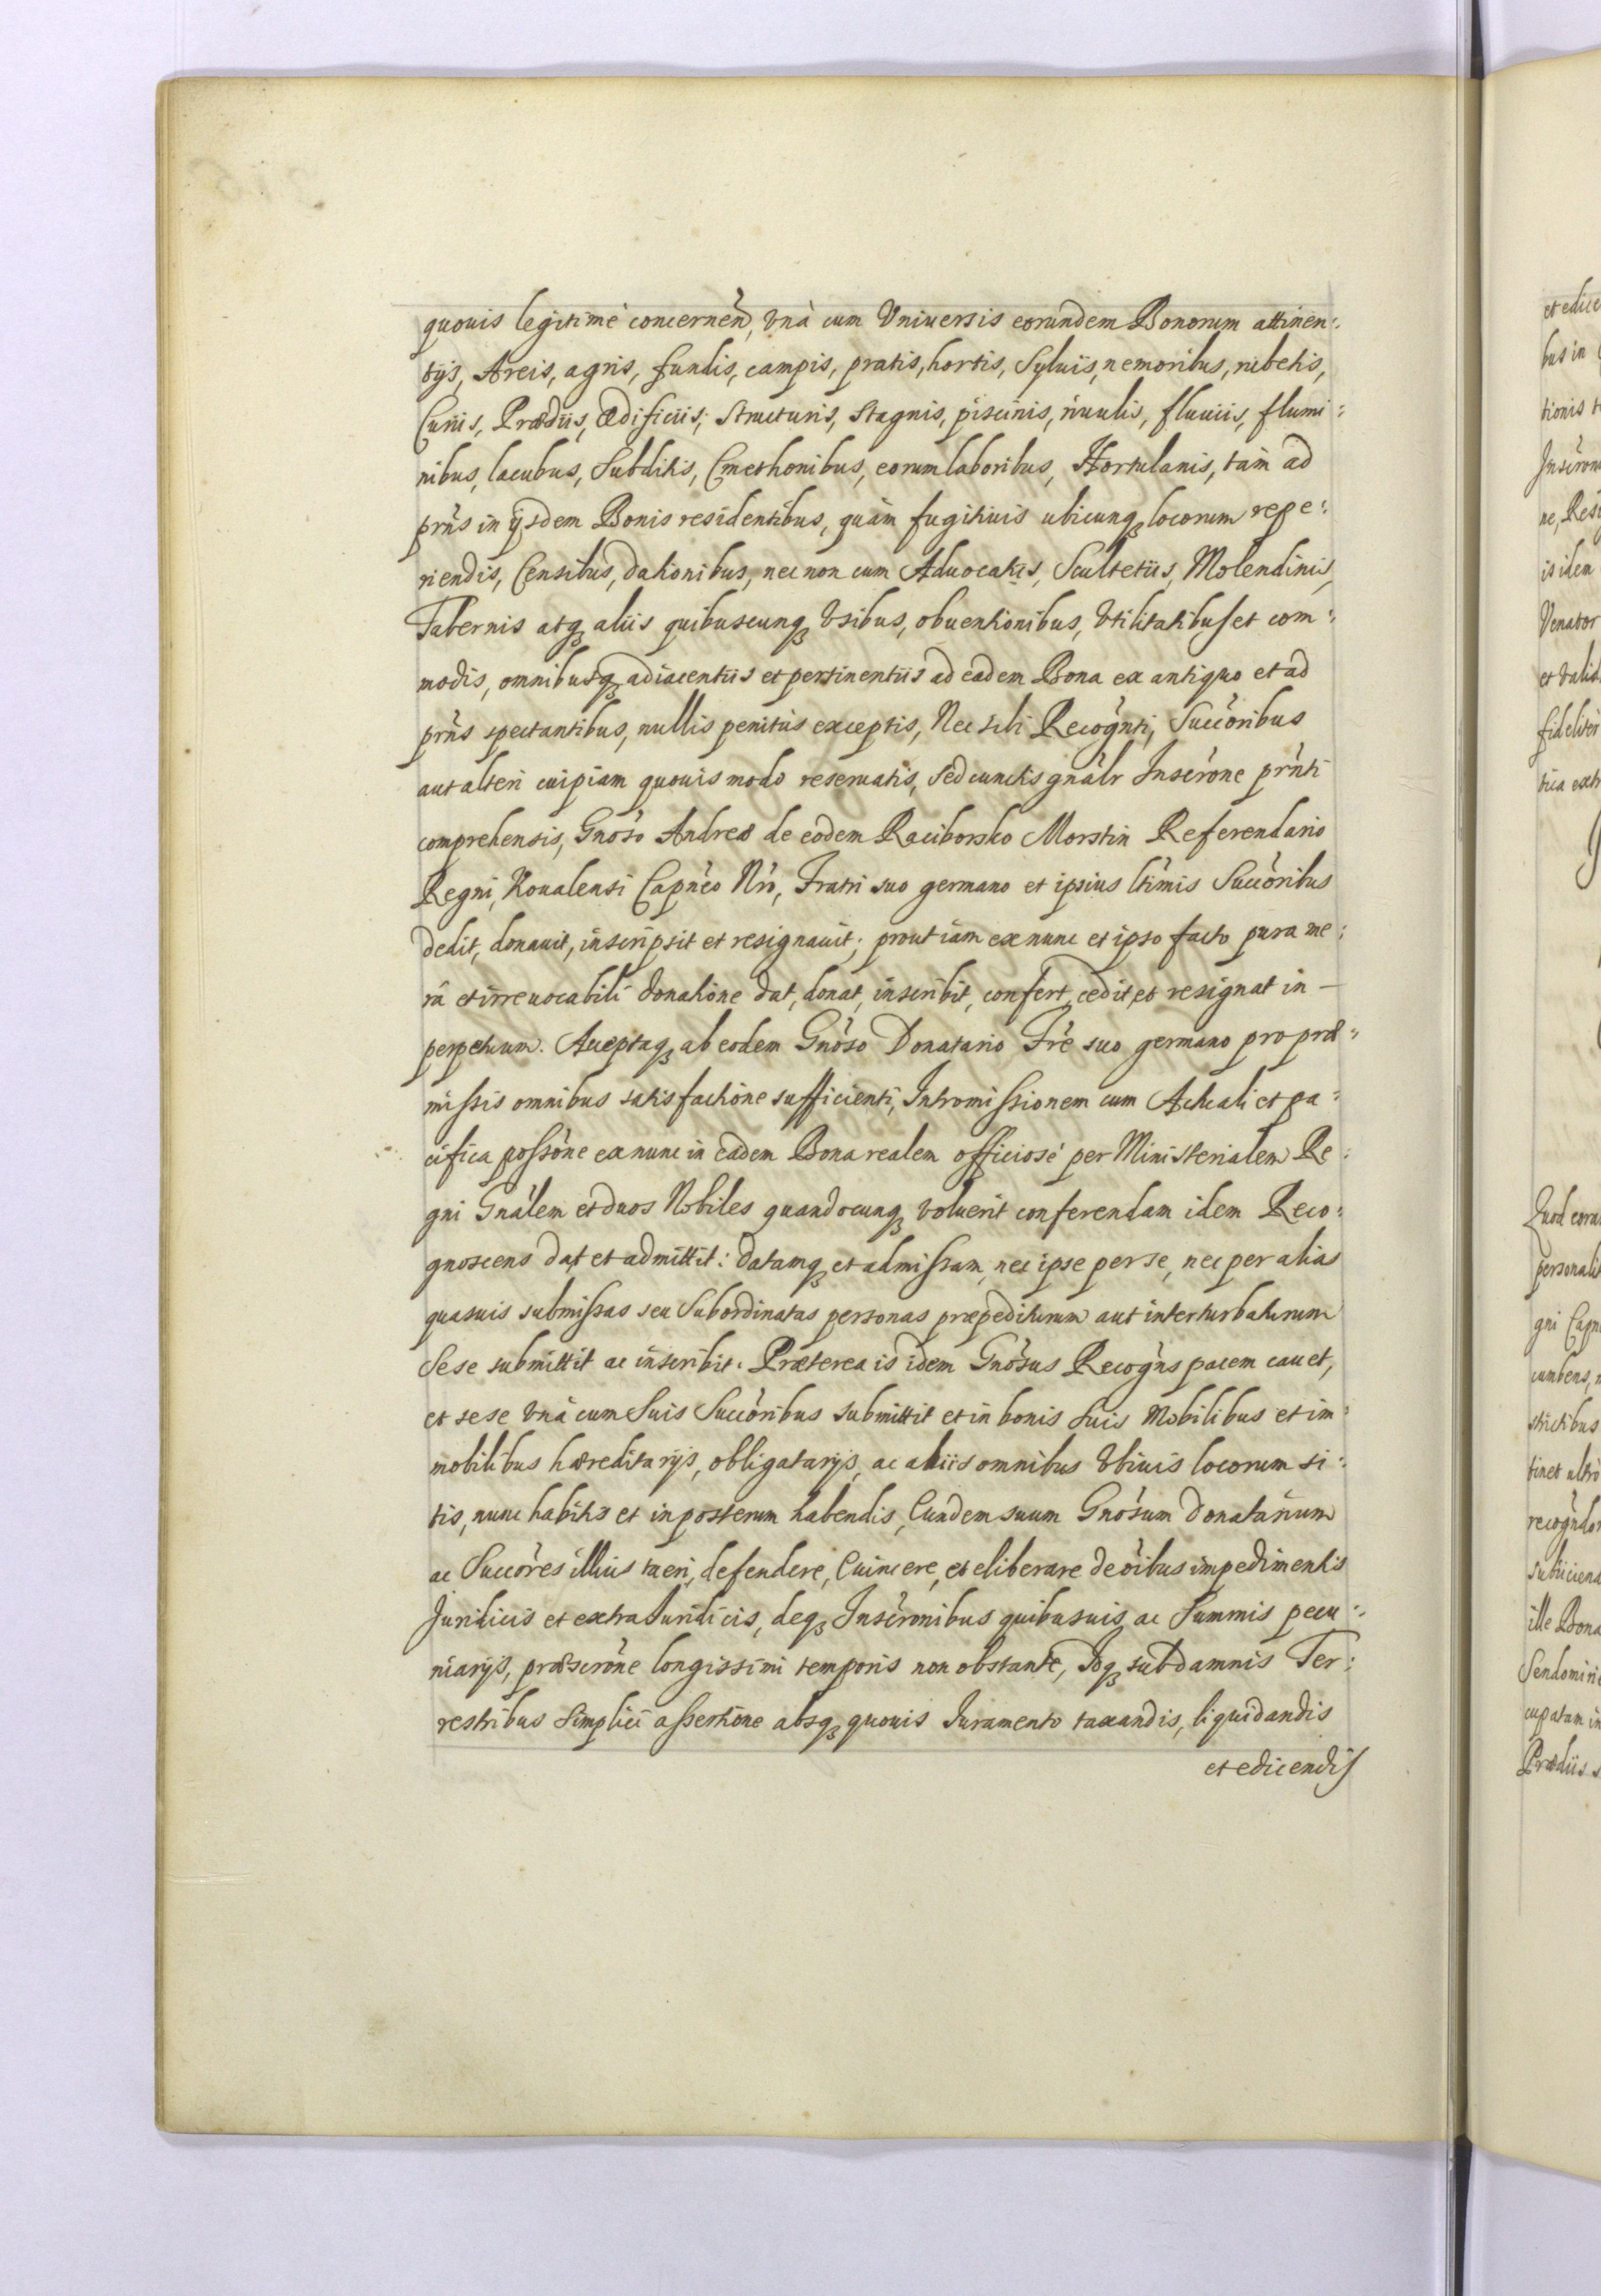 quouis legitimè concerneñ, Vnà cum Vniuersis eorundem Bonorum attinen:
tijs, Areis, agris, fundis, campis, pratis, hortis, Syluis, nemoribus, rubetis,
Curiis, Prædiis, ædificiis, structuris, stagnis, piscinis, riuulis, fluuiis, flumi:
nibus, lacubus, Subditis, Cmethonibus, eorum laboribus, Hortulanis, tàm ad
prn̄s in ijsdem Bonis residentibus, quàm fugitiuis ubicunq; locorum repe:
riendis, Censibus, dationibus, nec non cum Aduocatis, Scultetiis, Molendinis,
Tabernis atq; aliis quibuscunq; Vsibus, obuentionibus, Vtilitatibus et com:
modis, omnibusq; adiacentiis et pertinentiis ad eadem Bona ex antiquo et ad
prn̄s spectantibus, nullis penitùs exceptis, Nec sibi Recogn̄ti, Succōribus
aut alteri cuipiam quouis modo reseruatis, sed cunctis gnālr Inscrōne prn̄ti
comprehensis, Gnōso Andreæ de eodem Raciborsko Morstin Referendario
Regni, Koualensi Capnēo Nrō, Fratri suo germano et ipsius ltīmis Succōribus
dedit, donauit, inscripsit et resignauit; prout iam ex nunc et ipso facto pura me:
râ et irreuocabili donatione dat, donat, inscribit, confert, cedit, et resignat in –
perpetuum. Acceptaq; ab eodem Gnōso Donatario Frē suo germano pro præ:
missis omnibus satisfactione sufficienti, Intromissionem cum Actuali et pa:
cifica possōne ex nunc in eadem Bona realem officiosè per Ministerialem Re:
gni Gnālem et duos Nobiles quandocunq; voluerit conferendam idem Reco:
gnoscens dat et admittit: datamq; et admissam, nec ipse per se, nec per alias
quasuis submissas seu Subordinatas personas præpediturum aut interturbaturum
Sese submittit ac inscribit. Præterea is idem Gnōsus Recogn̄s pacem cauet,
et sese Vnâ cum Suis Succōribus submittit et in bonis Suis Mobilibus et im:
mobilibus hæreditarijs, obligatarijs, ac aliis omnibus Vbiuis locorum si:
tis, nunc habitis et in posterum habendis, Eundem suum Gnōsum Donatarium
ac Succōres illius tueri, defendere, Euincere, et eliberare de ōibus impedimentis
Juridicis et extraJuridicis, deq; Inscrōnibus quibusuis ac Summis pecu:
niarijs, præscrōne longissimi temporis non obstante, Idq; sub damnis Ter:
restribus Simplici assertione absq; quouis Juramento taxandis, liquidandis
et edicendis